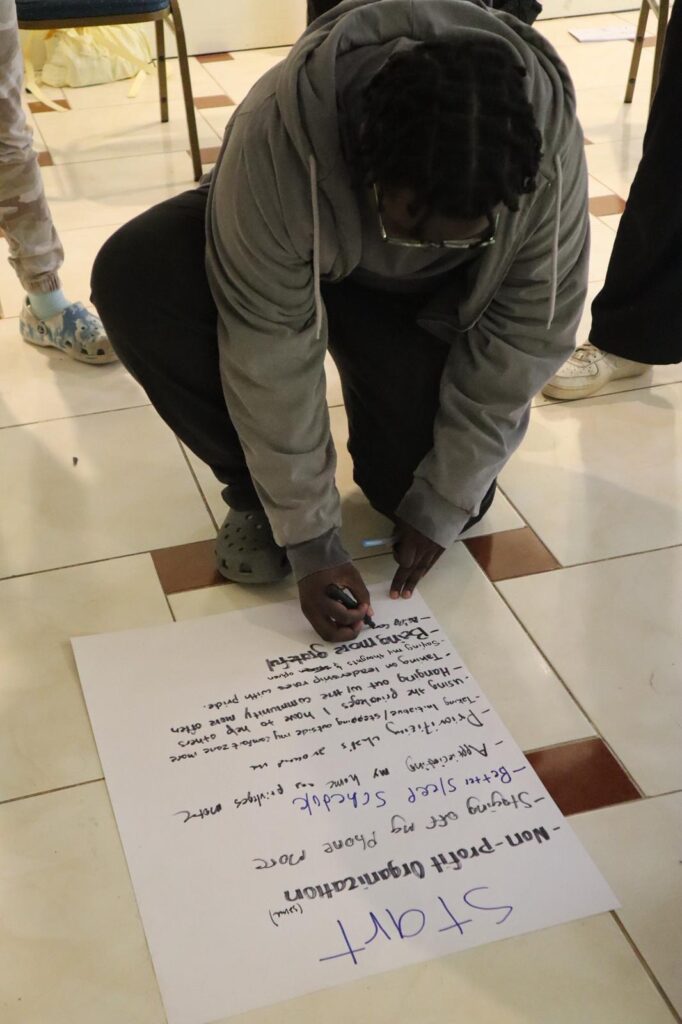 Start
- Non-profit Organization
- Staying off my phone more
- Better Sleep Schedule
- Appreciating my home privileges more
- Prioritizing what's around me
- Taking initiative/stepping outside my comfort zone more
- using the privileges I have to help others
- Hanging out w/ the community more often
- Taking on leadership roles with pride.
- Saying my thoughts often
- Being more grateful